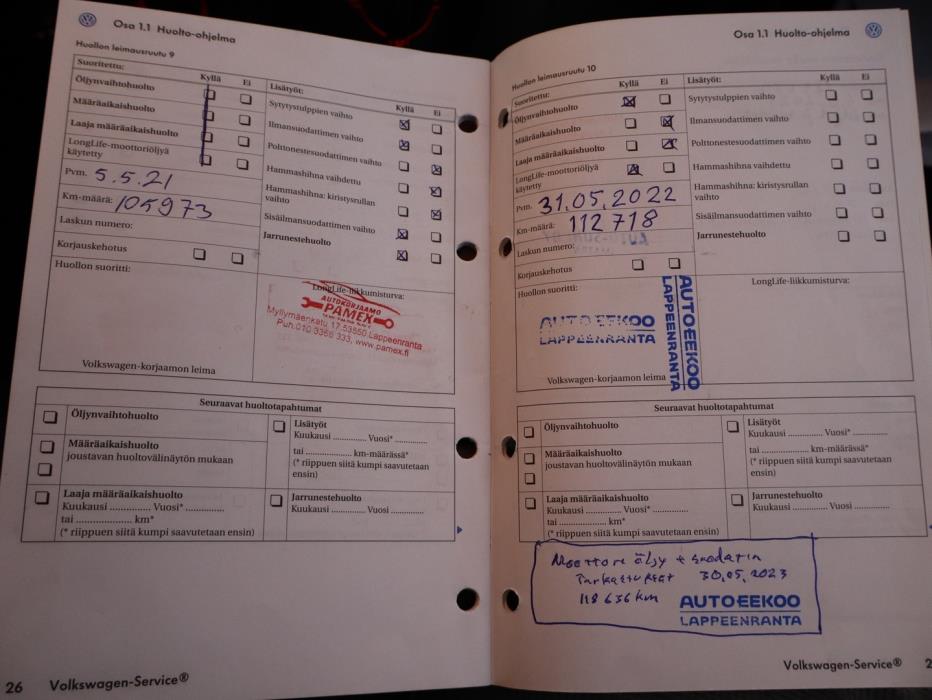 Osa 1.1 Huolto-ohjelma
Huollon leimausruutu 9
Suoritettu:
Kyllä
Ei
Öljynvaihtohuolto
Määräaikaishuolto
Laaja määräaikaishuolto
LongLife-moottoriöljyä
käytetty
Pvm. 5.5.21
Km-määrä: 105973
Laskun numero:
Korjauskehotus
Huollon suoritti:
Volkswagen-korjaamon leima
Lisätyöt:
Kyllä
Ei
Sytytystulppien vaihto
Ilmansuodattimen vaihto
Polttonestesuodattimen vaihto
Hammashihna vaihdettu
Hammashihna: kiristysrullan
vaihto
Sisäilmansuodattimen vaihto
Jarrunestehuolto
LongLife-liikkumisturva:
AUTOKORJAAMO
PAMEX
Myllymäenkatu 17, 53550 Lappeenranta
Puh. 010 3366 333, www.pamex.fi
Seuraavat huoltotapahtumat
Öljynvaihtohuolto
Määräaikaishuolto
joustavan huoltovälinäytön mukaan
Laaja määräaikaishuolto
Kuukausi .............. Vuosi* ..............
tai .................... km*
(* riippuen siitä kumpi saavutetaan ensin)
Lisätyöt
Kuukausi ............ Vuosi* ............
tai .................... km-määrässä*
(* riippuen siitä kumpi saavutetaan
ensin)
Jarrunestehuolto
Kuukausi ............ Vuosi ............
26 Volkswagen-Service®
Osa 1.1 Huolto-ohjelma
Huollon leimausruutu 10
Suoritettu:
Kyllä
Ei
Öljynvaihtohuolto
Määräaikaishuolto
Laaja määräaikaishuolto
LongLife-moottoriöljyä
käytetty
Pvm. 31.05.2022
Km-määrä: 112 718
Laskun numero:
Korjauskehotus
Huollon suoritti:
AUTOEEKOO
LAPPEENRANTA
AUTOEEKOO
LAPPEENRANTA
Volkswagen-korjaamon leima
Lisätyöt:
Kyllä
Ei
Sytytystulppien vaihto
Ilmansuodattimen vaihto
Polttonestesuodattimen vaihto
Hammashihna vaihdettu
Hammashihna: kiristysrullan
vaihto
Sisäilmansuodattimen vaihto
Jarrunestehuolto
LongLife-liikkumisturva:
Seuraavat huoltotapahtumat
Öljynvaihtohuolto
Määräaikaishuolto
joustavan huoltovälinäytön mukaan
Laaja määräaikaishuolto
Kuukausi ............ Vuosi* ............
tai .................... km*
(* riippuen siitä kumpi saavutetaan ensin)
Lisätyöt
Kuukausi ............ Vuosi* ............
tai .................... km-määrässä*
(* riippuen siitä kumpi saavutetaan
ensin)
Jarrunestehuolto
Kuukausi ............ Vuosi ............
Moottori öljy + suodatin
Tarkastukset 30.05.2023
118 636 km
AUTOEEKOO
LAPPEENRANTA
Volkswagen-Service®